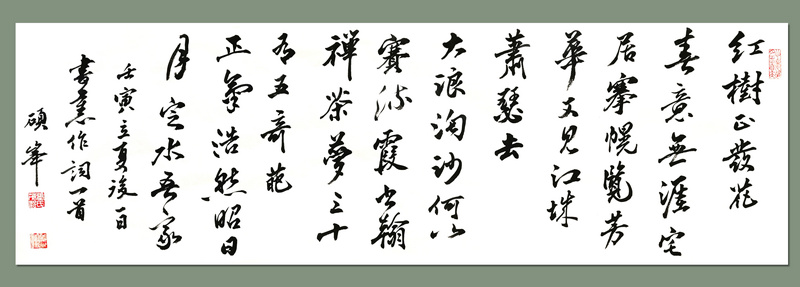 红樹正發花
春意無涯宅
居搴幌覽芳
華又見江城
蕭瑟去
大浪淘沙何以
賽流霞書翰
禪茶夢三十
有五奇葩
正氣浩然昭日
月定水吾家
壬寅立夏後一日
書舊作詞一首
碩峯